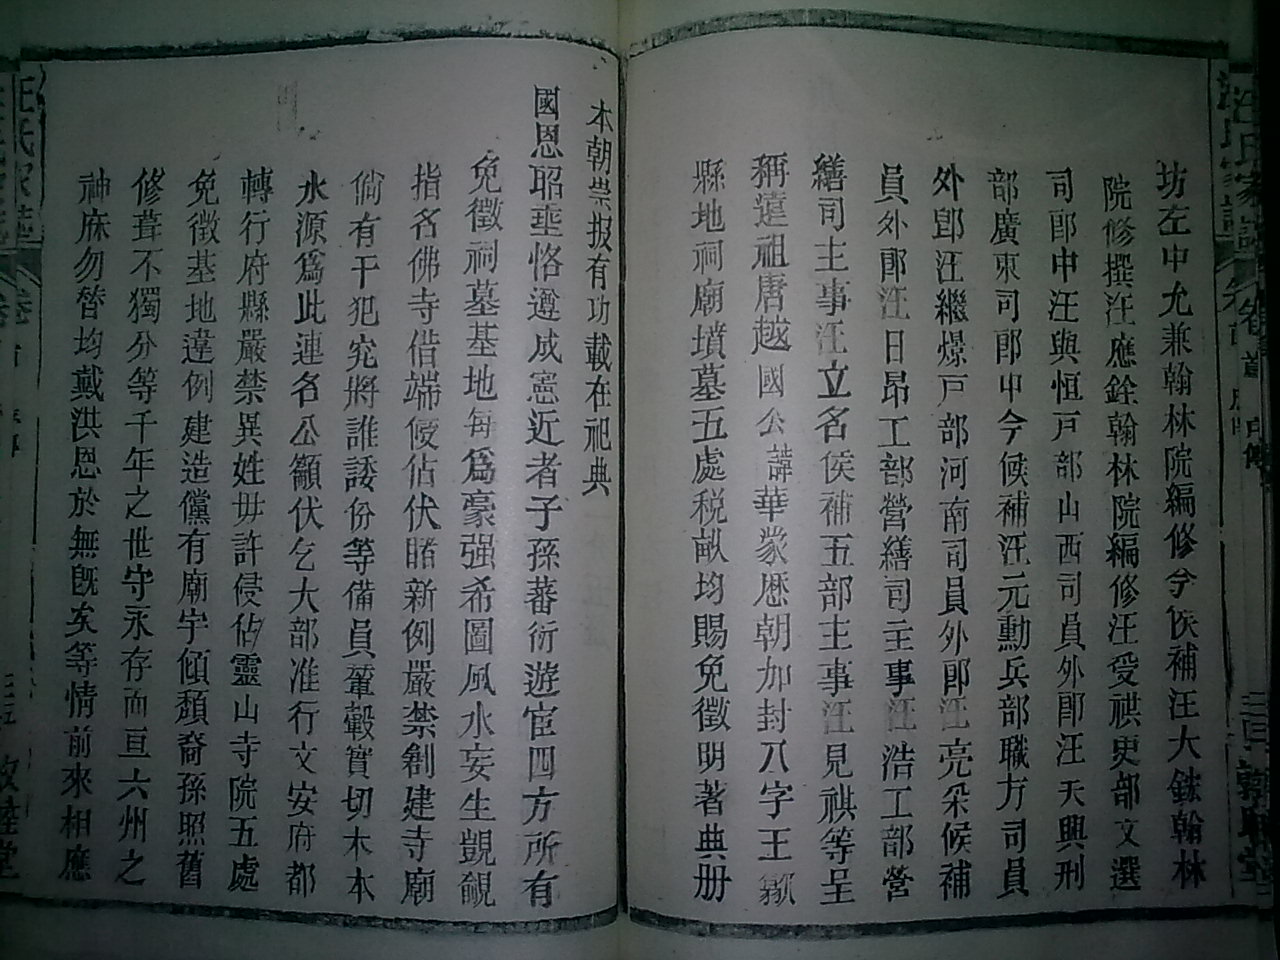 坊左中允兼翰林院編修今候補汪大鋐翰林
院修撰汪應銓翰林院編修汪受祺吏部文選
司郎中汪與恒戸部山西司員外郎汪天興刑
部廣東司郎中今候補汪元勳兵部職方司員
外郎汪繼燝戸部河南司員外郎汪亮采候補
員外郎汪日昂工部營繕司主事汪浩工部營
繕司主事汪立名候補五部主事汪見祺等呈
稱遠祖唐越國公諱華蒙歷朝加封八字王
縣地祠廟墳墓五處税畝均賜免徵明著典册
本朝崇报有功載在祀典
國恩昭垂恪遵成憲近者子孫蕃衍遊宦四方所有
免徵祠墓基地每為豪强希圖風水妄生覬覦
指名佛寺借端侵佔伏睹新例嚴禁創建寺廟
倘有干犯究將誰諉份等備員輦轂實切木本
水源為此連名公籲伏乞大部准行文安府都
轉行府縣嚴禁異姓毋許侵佔靈山寺院五處
免徵基地違例建造儻有廟宇傾頽裔孫照舊
修葺不獨分等千年之世守永存而亘六州之
神庥勿替均戴洪恩於無既矣等情前來相應
汪氏家譜